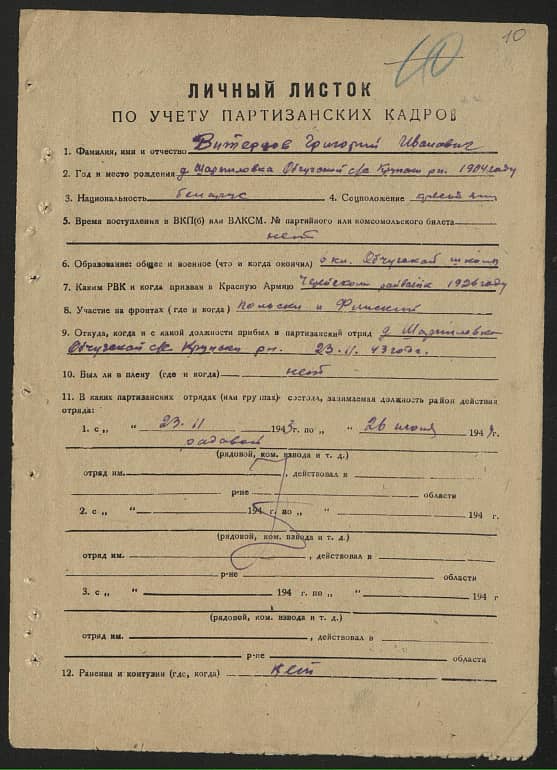 10
10
ЛИЧНЫЙ ЛИСТОК
ПО УЧЕТУ ПАРТИЗАНСКИХ КАДРОВ
1. Фамилия, имя и отчество Григорий Иванович
2. Год и место рождения д. Обчугской с/с Крупски рн. 1904 году
3. Национальность беларус 4. Соцположение
5. Время поступления в ВКП(б) или ВЛКСМ. № партийного или комсомольского билета
нет
6. Образование: общее и военное (что и когда окончил) окн. Обчугской школы
7. Каким РВК и когда призван в Красную Армию 1926 году
8. Участие на фронтах (где и когда) Польски и Фински
9. Откуда, когда и с какой должности прибыл в партизанский отряд д.
Обчугской с/с Крупски рн. 23.11.43 года.
10. Был ли в плену (где и когда) нет
11. В каких партизанских отрядах (или группах) состоял, занимаемая должность район действия
отряда:
1. с „ “ 23.11 1943 г. по „ “ 26 июня 194 г.
радовой
(рядовой, ком. взвода и т. д.)
отряд им. , действовал в
р-не области
2. с „ “ 194 г. по „ “ 194 г.
(рядовой, ком. взвода и т. д.)
отряд им. , действовал в
р-не области
3. с „ “ 194 г. по „ “ 194 г
(рядовой, ком. взвода и т. д.)
отряд им. , действовал в
р-не области
12. Ранения и контузии (где, когда) нет